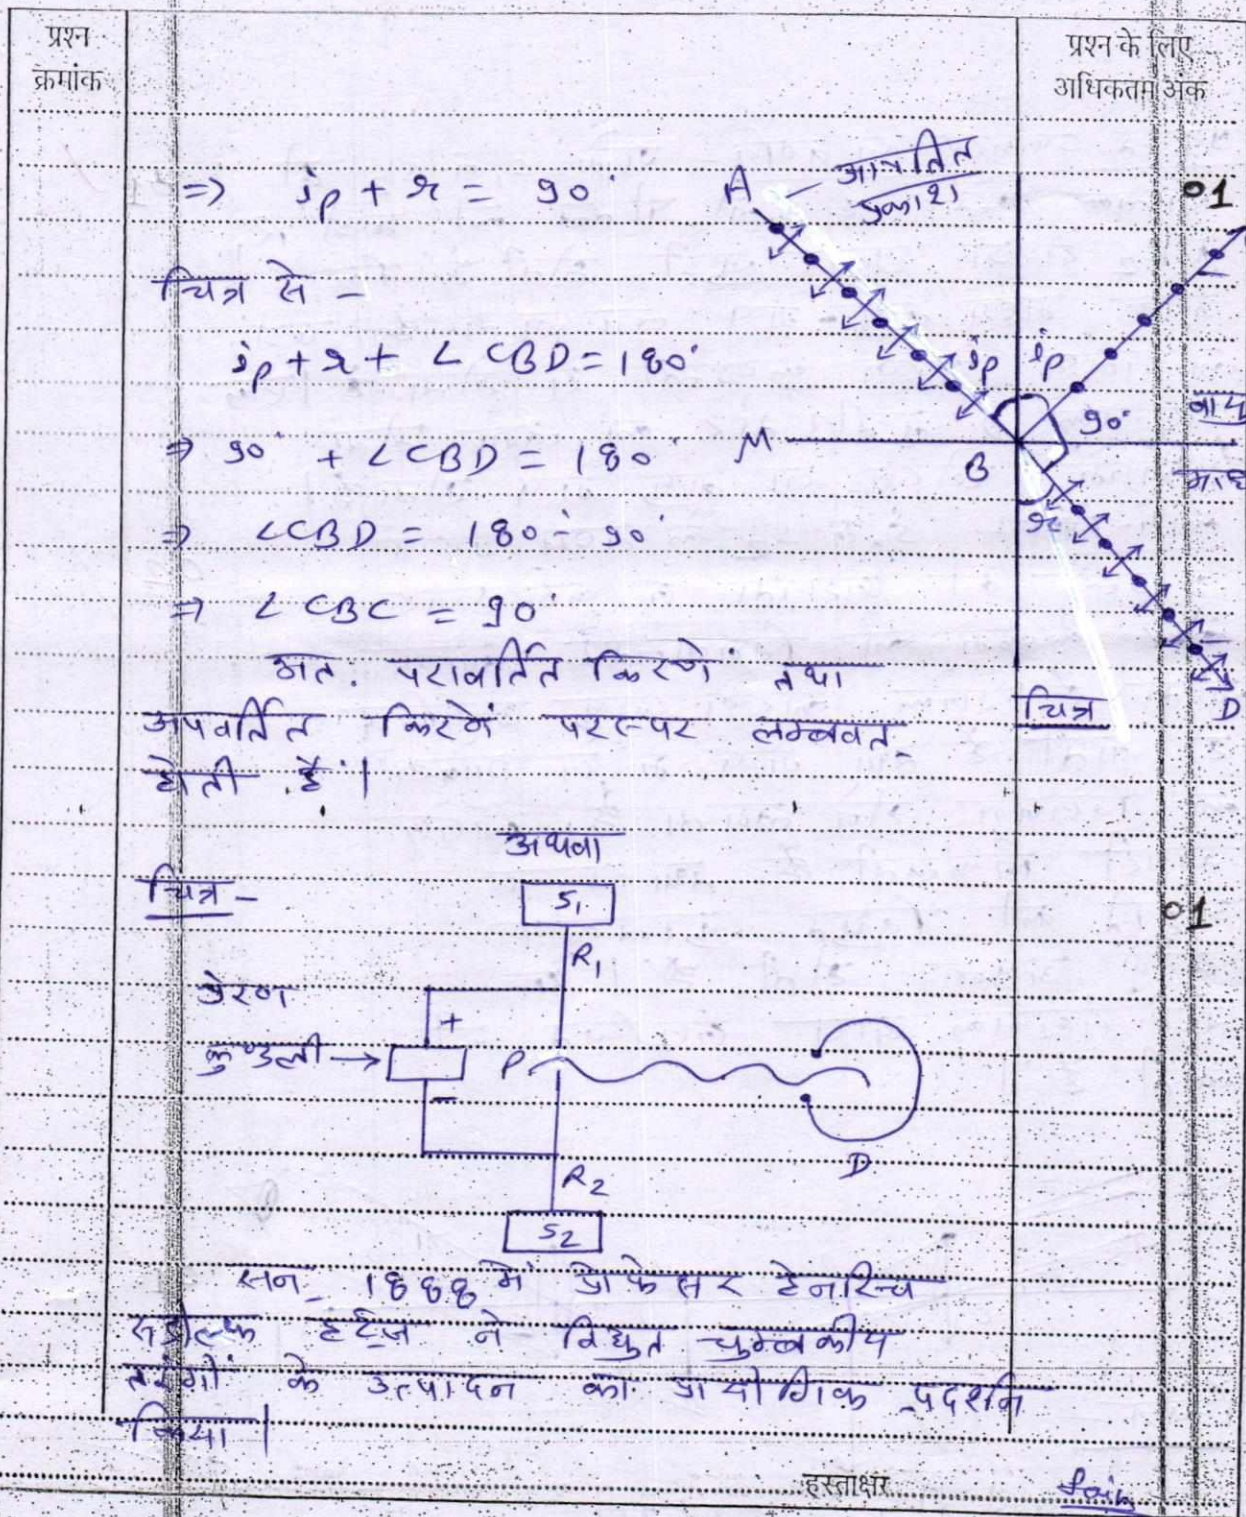 प्रश्न क्रमांक
प्रश्न के लिए अधिकतम अंक
⇒ ip + r = 90°
A
आपतित प्रकाश
01
चित्र से -
ip + r + ∠CBD = 180°
ip ip
⇒ 90° + ∠CBD = 180°
M
B
90°
r
⇒ ∠CBD = 180° - 90°
⇒ ∠CBC = 90°
अत: परावर्तित किरणें तथा
अपवर्तित किरणें परस्पर लम्बवत्
होती हैं।
चित्र
D
अथवा
चित्र -
01
S1
R1
प्रेरण
कुण्डली →
+
-
P
D
R2
S2
सन् 1888 में प्रोफेसर हेनरिच
रूडोल्फ हर्ट्ज ने विधुत चुम्बकीय
तरंगों के उत्पादन का प्रायोगिक प्रदर्शन
किया।
हस्ताक्षर